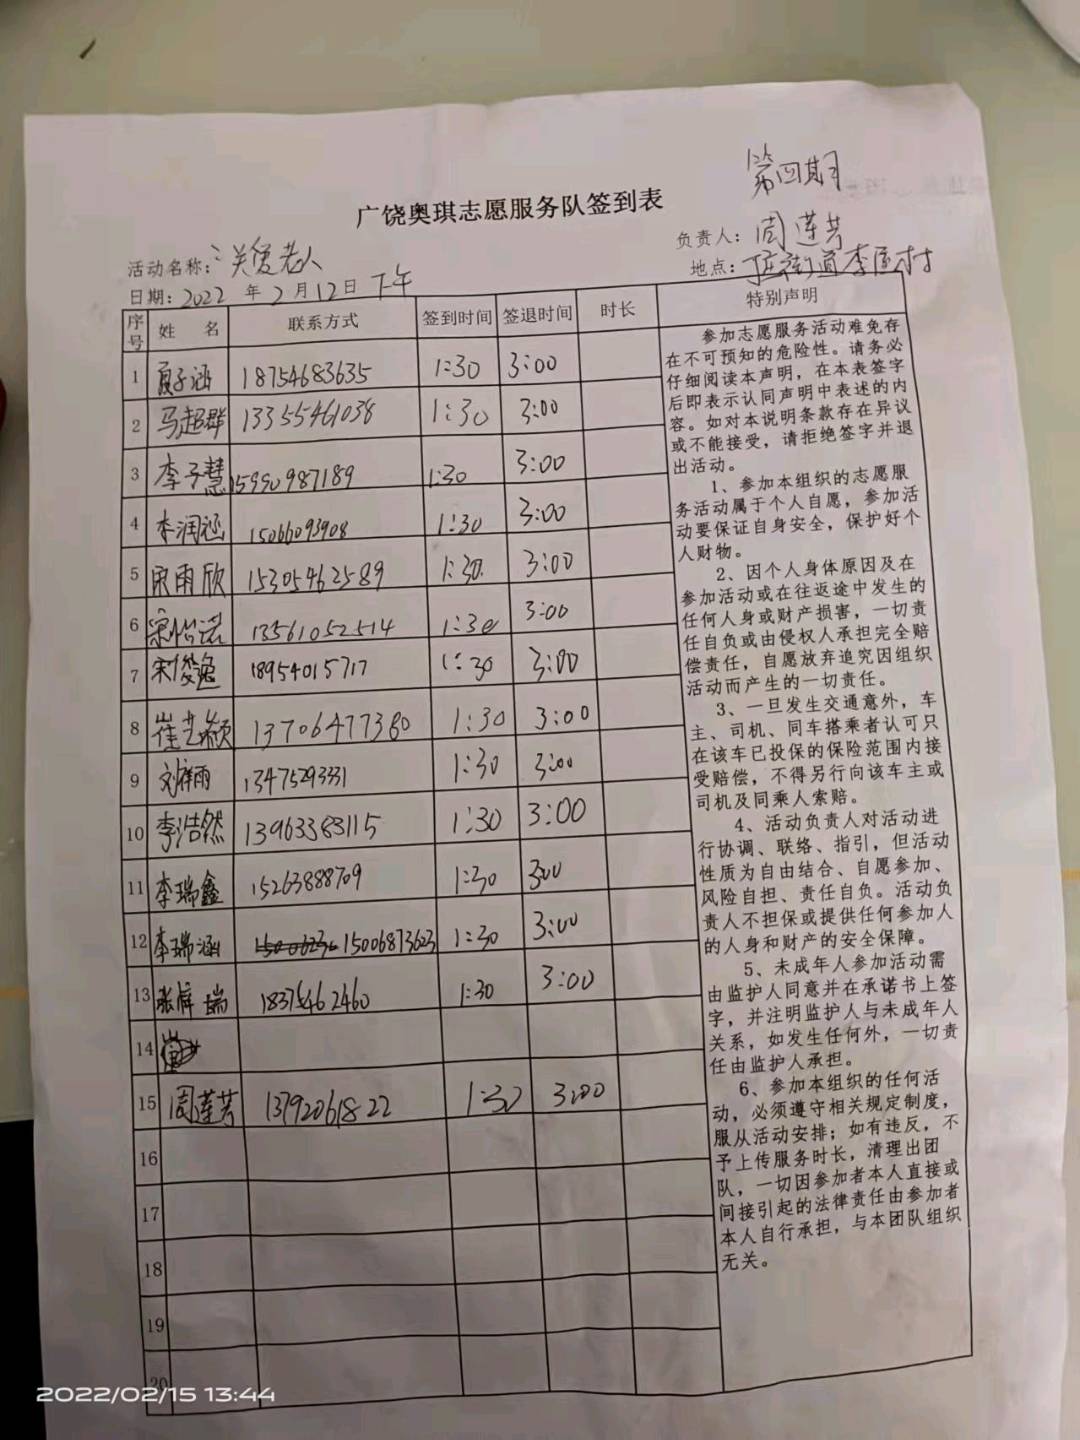 第四期
广饶奥琪志愿服务队签到表
活动名称: 关爱老人
负责人: 周莲芳
日期: 2022 年 2 月 12 日 下午
地点: 街道李 村
序号 姓 名 联系方式 签到时间 签退时间 时长 特别声明
1 夏子涵 18754683635 1:30 3:00
2 马超群 13355461038 1:30 3:00
3 李子慧 15990987189 1:30 3:00
4 李润涵 15066093908 1:30 3:00
5 宋雨欣 15305462589 1:30 3:00
6 宋怡诺 13561052514 1:30 3:00
7 18954015717 1:30 3:00
8 崔艺颖 13706477380 1:30 3:00
9 刘祥雨 13475293331 1:30 3:00
10 李浩然 13963383115 1:30 3:00
11 李瑞鑫 15263888709 1:30 3:00
12 李瑞涵 15006873623 1:30 3:00
13 张梓瑞 18375462460 1:30 3:00
14
15 周莲芳 13792061822 1:30 3:00
16
17
18
19
20
参加志愿服务活动难免存
在不可预知的危险性。请务必
仔细阅读本声明，在本表签字
后即表示认同声明中表述的内
容。如对本说明条款存在异议
或不能接受，请拒绝签字并退
出活动。
1、参加本组织的志愿服
务活动属于个人自愿，参加活
动要保证自身安全，保护好个
人财物。
2、因个人身体原因及在
参加活动或在往返途中发生的
任何人身或财产损害，一切责
任自负或由侵权人承担完全赔
偿责任，自愿放弃追究因组织
活动而产生的一切责任。
3、一旦发生交通意外，车
主、司机、同车搭乘者认可只
在该车已投保的保险范围内接
受赔偿，不得另行向该车主或
司机及同乘人索赔。
4、活动负责人对活动进
行协调、联络、指引，但活动
性质为自由结合、自愿参加、
风险自担、责任自负。活动负
责人不担保或提供任何参加人
的人身和财产的安全保障。
5、未成年人参加活动需
由监护人同意并在承诺书上签
字，并注明监护人与未成年人
关系，如发生任何意外，一切责
任由监护人承担。
6、参加本组织的任何活
动，必须遵守相关规定制度，
服从活动安排；如有违反，不
予上传服务时长，清理出团
队，一切因参加者本人直接或
间接引起的法律责任由参加者
本人自行承担，与本团队组织
无关。
2022/02/15 13:44